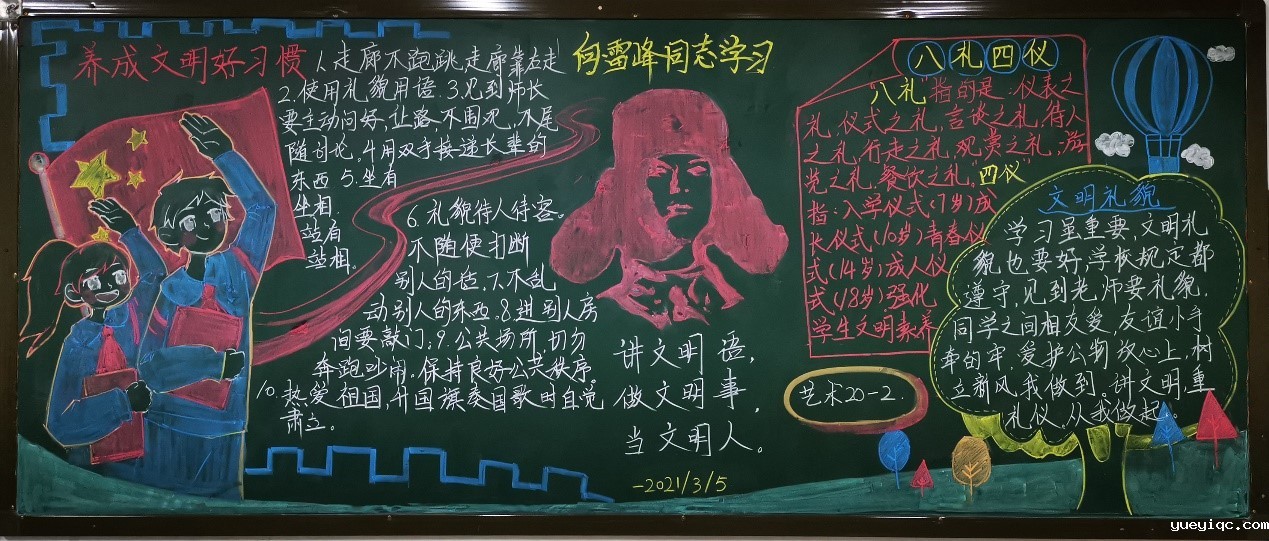 养成文明好习惯
1.走廊不跑跳,走廊靠左走
2.使用礼貌用语.3.见到师长
要主动问好,让路不围观,不尾
随讨论。4.用双手接递长辈的
东西 5.坐有
坐相.
站有
站相。
6.礼貌待人待客。
不随便打断
别人的话,7.不乱
动别人的东西.8.进别人房
间要敲门;9.公共场所,切勿
奔跑吵闹.保持良好公共秩序
10.热爱祖国,升国旗奏国歌时自觉
肃立。
向雷峰同志学习
讲文明语,
做文明事,
当文明人。
-2021/3/5
八礼四仪
"八礼"指的是:仪表之
礼,仪式之礼,言谈之礼,待人
之礼,行走之礼,观赏之礼,游
览之礼,餐饮之礼。"四仪"
指:入学仪式(7岁)成
长仪式(10岁)青春仪
式(14岁)成人仪
式(18岁)强化
学生文明素养
艺术20-2.
文明礼貌
学习虽重要,文明礼
貌也要好,学校规定都
遵守,见到老师要礼貌.
同学之间相友爱,友谊小手
牵的牢,爱护公物放心上,树
立新风我做到。讲文明,重
礼仪,从我做起。
www.yueyiqc.com